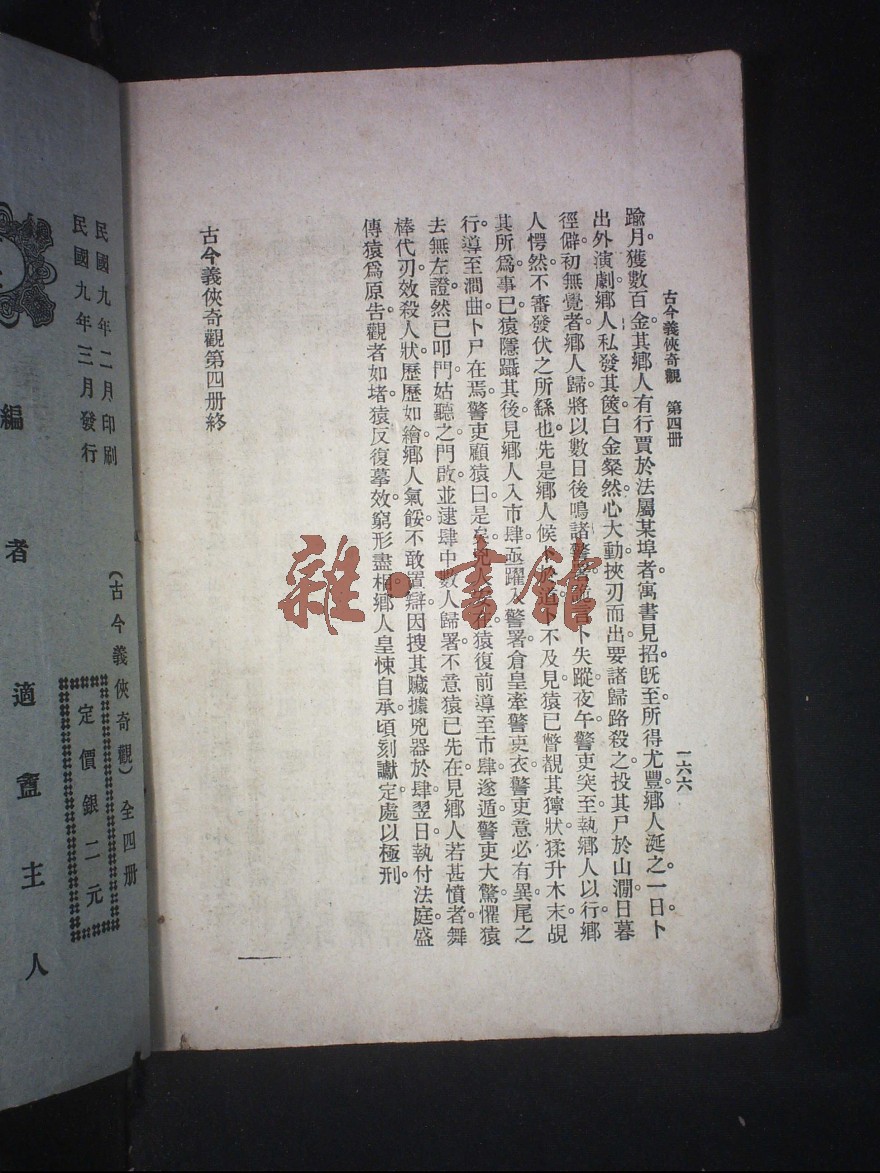 古今義俠奇觀　第四册
一六六
踰月。獲數百金其鄉人有行賈於法屬某埠者寓書見招。旣至所得尤豐。鄉人涎之。一日卜
出外演劇鄉人私發其篋。白金粲然心大動。挾刃而出要諸歸路殺之。投其尸於山澗。日暮
徑僻。初無覺者。鄉人歸將以數日後鳴諸警言卜失蹤。夜午警吏突至執鄉人以行。鄉
人愕然。不審發伏之所繇也。先是鄉人候卜於道。卜不及見猿已瞥覩其獰狀猱升木末。覘
其所爲。事已猿隱躡其後。見鄉人入市肆。亟躍入警署倉皇牽警吏衣。警吏意必有異。尾之
行。導至澗曲。卜尸在焉。警吏顧猿曰是矣。兇人安在猿復前導至市肆。遂遁。警吏大驚懼猿
去無左證。然已叩門姑聽之。門啟。並逮肆中數人歸署。不意猿已先在。見鄉人若甚憤者。舞
棒代刃效殺人狀。歷歷如繪。鄉人氣餒。不敢置辯。因搜其贓據兇器於肆。翌日執付法庭盛
傳猿爲原告。觀者如堵。猿反復摹效。窮形盡相。鄉人皇悚自承。頃刻讞定。處以極刑。
古今義俠奇觀第四册終
雜·書館
民國九年二月印刷
民國九年三月發行
（古今義俠奇觀）全四册
定價銀二元
編者　適盦主人